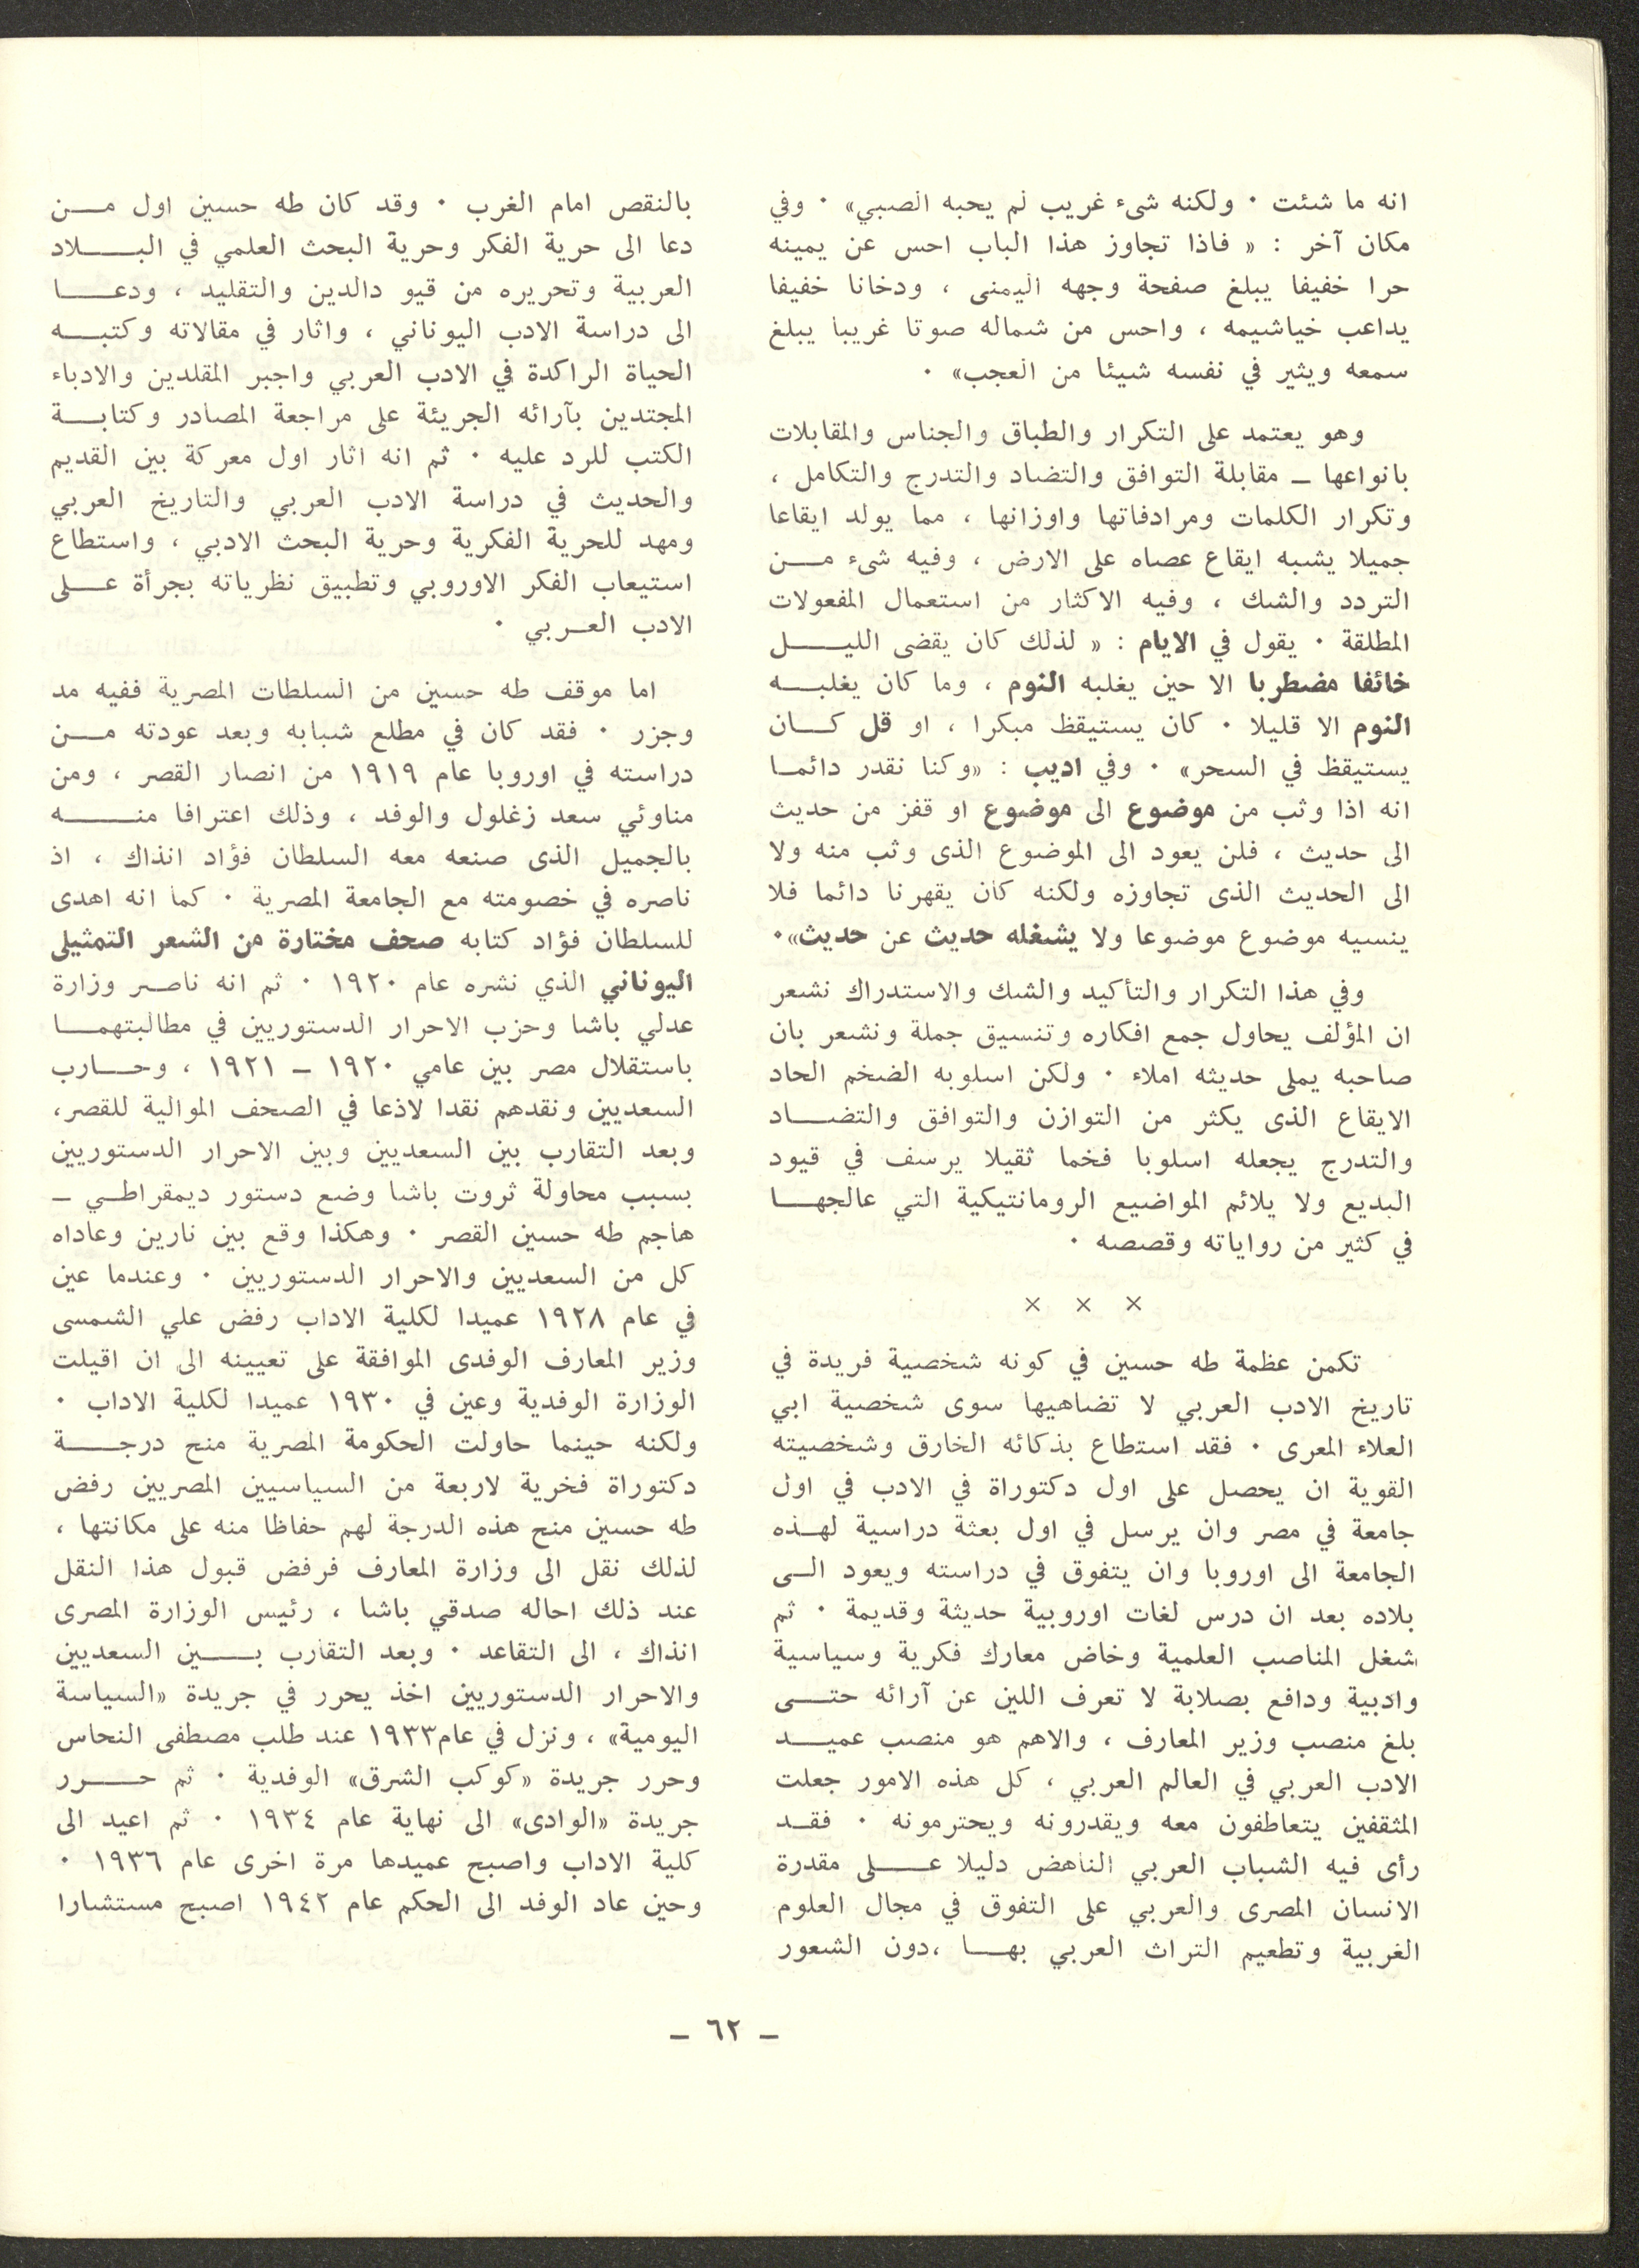 انه ما شئت ٠ ولكنه شىء غريب لم يحبه الصبي» ٠ وفي
مكان آخر : « فاذا تجاوز هذا الباب احس عن يمينه
حرا خفيفا يبلغ صفحة وجهه اليمنى ، ودخانا خفيفا
يداعب خياشيمه ، واحس من شماله صوتا غريبا يبلغ
سمعه ويثير في نفسه شيئا من العجب» ٠
وهو يعتمد على التكرار والطباق والجناس والمقابلات
بانواعها ــ مقابلة التوافق والتضاد والتدرج والتكامل ،
وتكرار الكلمات ومرادفاتها واوزانها ، مما يولد ايقاعا
جميلا يشبه ايقاع عصاه على الارض ، وفيه شىء مــن
التردد والشك ، وفيه الاكثار من استعمال المفعولات
المطلقة ٠ يقول في الايام : « لذلك كان يقضى الليـــل
خائفا مضطربا الا حين يغلبه النوم ، وما كان يغلبــه
النوم الا قليلا ٠ كان يستيقظ مبكرا ، او قل كــان
يستيقظ في السحر» ٠ وفي اديب : «وكنا نقدر دائمـا
انه اذا وثب من موضوع الى موضوع او قفز من حديث
الى حديث ، فلن يعود الى الموضوع الذى وثب منه ولا
الى الحديث الذى تجاوزه ولكنه كان يقهرنا دائما فلا
ينسيه موضوع موضوعا ولا يشغله حديث عن حديث»٠
وفي هذا التكرار والتأكيد والشك والاستدراك نشعر
ان المؤلف يحاول جمع افكاره وتنسيق جملة ونشعر بان
صاحبه يملى حديثه املاء ٠ ولكن اسلوبه الضخم الحاد
الايقاع الذى يكثر من التوازن والتوافق والتضــاد
والتدرج يجعله اسلوبا فخما ثقيلا يرسف في قيود
البديع ولا يلائم المواضيع الرومانتيكية التي عالجهــا
في كثير من رواياته وقصصه ٠
× × ×
تكمن عظمة طه حسين في كونه شخصية فريدة في
تاريخ الادب العربي لا تضاهيها سوى شخصية ابي
العلاء المعرى ٠ فقد استطاع بذكائه الخارق وشخصيته
القوية ان يحصل على اول دكتوراة في الادب في اول
جامعة في مصر وان يرسل في اول بعثة دراسية لهــذه
الجامعة الى اوروبا وان يتفوق في دراسته ويعود الــى
بلاده بعد ان درس لغات اوروبية حديثة وقديمة ٠ ثم
شغل المناصب العلمية وخاض معارك فكرية وسياسية
وادبية ودافع بصلابة لا تعرف اللين عن آرائه حتــى
بلغ منصب وزير المعارف ، والاهم هو منصب عميــد
الادب العربي في العالم العربي ، كل هذه الامور جعلت
المثقفين يتعاطفون معه ويقدرونه ويحترمونه ٠ فقــد
رأى فيه الشباب العربي الناهض دليلا عــلى مقدرة
الانسان المصرى والعربي على التفوق في مجال العلوم
الغربية وتطعيم التراث العربي بهــا ،دون الشعور
بالنقص امام الغرب ٠ وقد كان طه حسين اول مــن
دعا الى حرية الفكر وحرية البحث العلمي في البــلاد
العربية وتحريره من قيو دالدين والتقليد ، ودعــا
الى دراسة الادب اليوناني ، واثار في مقالاته وكتبــه
الحياة الراكدة في الادب العربي واجبر المقلدين والادباء
المجتدين بآرائه الجريئة على مراجعة المصادر وكتابــة
الكتب للرد عليه ٠ ثم انه اثار اول معركة بين القديم
والحديث في دراسة الادب العربي والتاريخ العربي
ومهد للحرية الفكرية وحرية البحث الادبي ، واستطاع
استيعاب الفكر الاوروبي وتطبيق نظرياته بجرأة عــلى
الادب العــربي ٠
اما موقف طه حسين من السلطات المصرية ففيه مد
وجزر ٠ فقد كان في مطلع شبابه وبعد عودته مــن
دراسته في اوروبا عام ١٩١٩ من انصار القصر ، ومن
مناوئي سعد زغلول والوفد ، وذلك اعترافا منـــه
بالجميل الذى صنعه معه السلطان فؤاد انذاك ، اذ
ناصره في خصومته مع الجامعة المصرية ٠ كما انه اهدى
للسلطان فؤاد كتابه صحف مختارة من الشعر التمثيلى
اليوناني الذي نشره عام ١٩٢٠ ٠ ثم انه ناصر وزارة
عدلي باشا وحزب الاحرار الدستوريين في مطالبتهمــا
باستقلال مصر بين عامي ١٩٢٠ ــ ١٩٢١ ، وحــارب
السعديين ونقدهم نقدا لاذعا في الصحف الموالية للقصر،
وبعد التقارب بين السعديين وبين الاحرار الدستوريين
بسبب محاولة ثروت باشا وضع دستور ديمقراطي ــ
هاجم طه حسين القصر ٠ وهكذا وقع بين نارين وعاداه
كل من السعديين والاحرار الدستوريين ٠ وعندما عين
في عام ١٩٢٨ عميدا لكلية الاداب رفض علي الشمسى
وزير المعارف الوفدى الموافقة على تعيينه الى ان اقيلت
الوزارة الوفدية وعين في ١٩٣٠ عميدا لكلية الاداب ٠
ولكنه حينما حاولت الحكومة المصرية منح درجـــة
دكتوراة فخرية لاربعة من السياسيين المصريين رفض
طه حسين منح هذه الدرجة لهم حفاظا منه على مكانتها ،
لذلك نقل الى وزارة المعارف فرفض قبول هذا النقل
عند ذلك احاله صدقي باشا ، رئيس الوزارة المصرى
انذاك ، الى التقاعد ٠ وبعد التقارب بـــين السعديين
والاحرار الدستوريين اخذ يحرر في جريدة «السياسة
اليومية» ، ونزل في عام١٩٣٣ عند طلب مصطفى النحاس
وحرر جريدة «كوكب الشرق» الوفدية ٠ ثم حـــرر
جريدة «الوادى» الى نهاية عام ١٩٣٤ ٠ ثم اعيد الى
كلية الاداب واصبح عميدها مرة اخرى عام ١٩٣٦ ٠
وحين عاد الوفد الى الحكم عام ١٩٤٢ اصبح مستشارا
ــ ٦٢ ــ